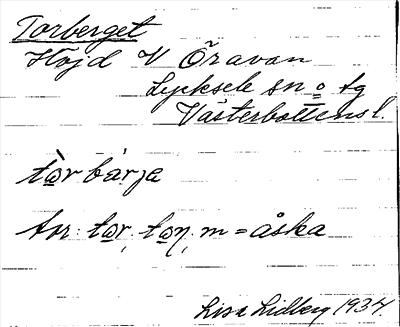 Torberget
Höjd V Öravan
Lycksele sn o tg
Västerbottens l.
tòrbárja
tor: tor, toṇ, m = åska
Lisa Lidberg 1934.